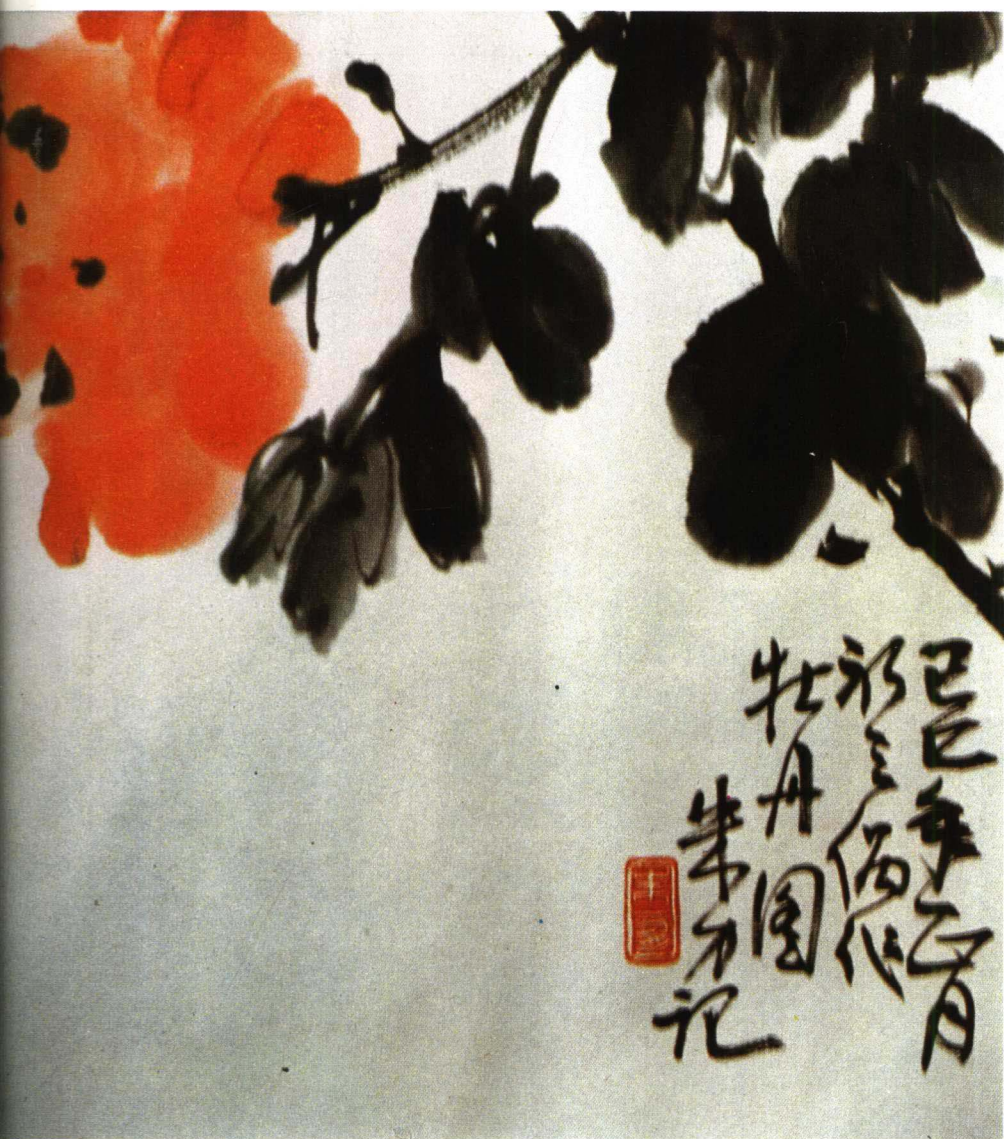 己巳年正月
初三偶作
牡丹图
朱力记